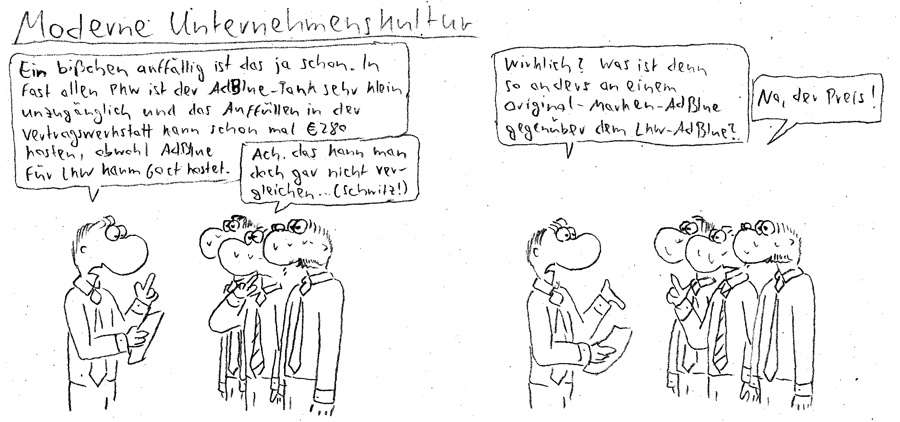 Moderne Unternehmenskultur
Ein bißchen auffällig ist das ja schon. In
fast allen Pkw ist der AdBlue-Tank sehr klein,
unzugänglich und das Auffüllen in der
Vertragswerkstatt kann schon mal €280
kosten, obwohl AdBlue
für Lkw kaum 60ct kostet.
Ach, das kann man
doch gar nicht ver-
gleichen...(Schwitz!)
Wirklich? Was ist denn
so anders an einem
Original-Marken-AdBlue
gegenüber dem Lkw-AdBlue?
Na, der Preis!